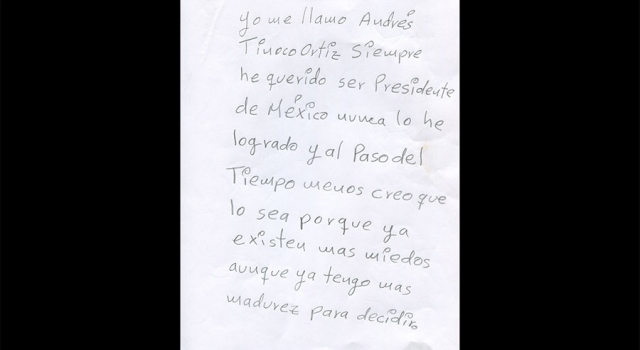 yo me llamo Andrés
Tinoco Ortiz Siempre
he querido ser Presidente
de México nunca lo he
logrado y al Paso del
Tiempo menos creo que
lo sea porque ya
existen mas miedos
aunque ya tengo mas
madurez para decidir.